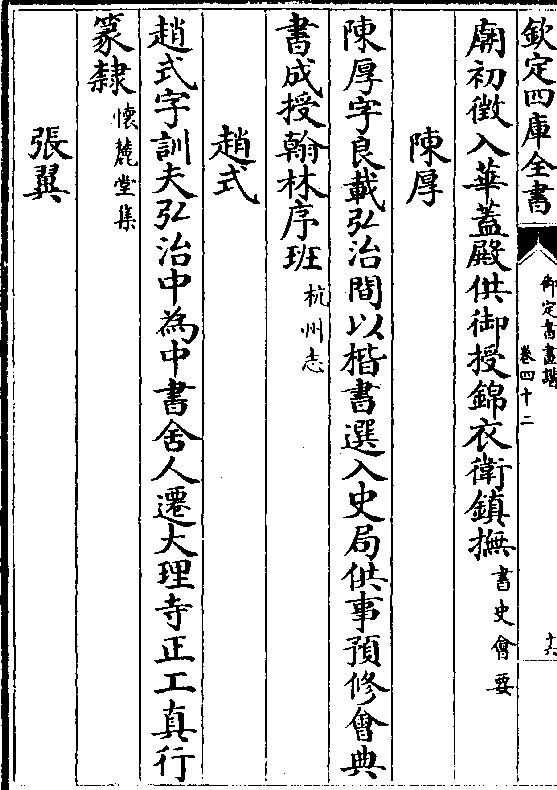 欽定四庫全書
御定書畫譜
卷四十二
十六
廟初徴入華蓋殿供御授錦衣衛鎮撫書史會要
陳厚
陳厚字良載弘治間以楷書選入史局供事預修會典
書成授翰林序班杭州志
趙式
趙式字訓夫弘治中為中書舍人遷大理寺正工真行
篆隸懷麓堂集
張翼